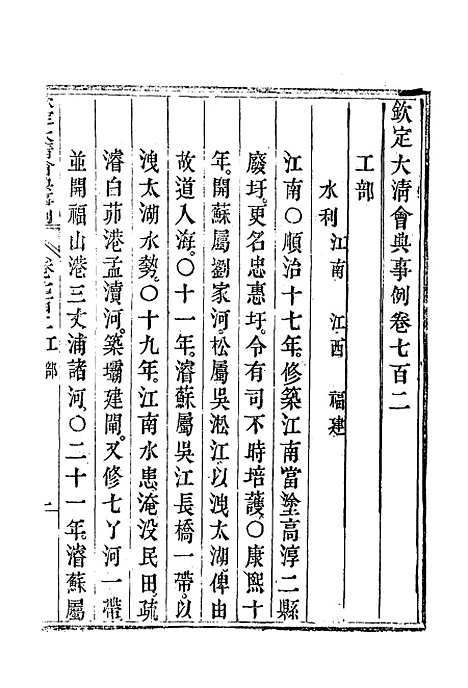 欽定大清會典事例卷七百二
工部
水利江南　江西　福建
江南〇順治十七年。修築江南當塗高淳二縣
廢圩。更名忠惠圩。令有司不時培護〇康熙十
年。開蘇屬劉家河。松屬吳淞江。以洩太湖。俾由
故道入海。〇十一年。濬蘇屬吳江長橋一帶。以
洩太湖水勢。〇十九年。江南水患。淹没民田。疏
濬白茆港孟瀆河。築壩建閘。又修七丫河一帶
並開福山港三丈浦諸河。〇二十一年。濬蘇屬
欽定大清會典事例　卷七百二工部　一